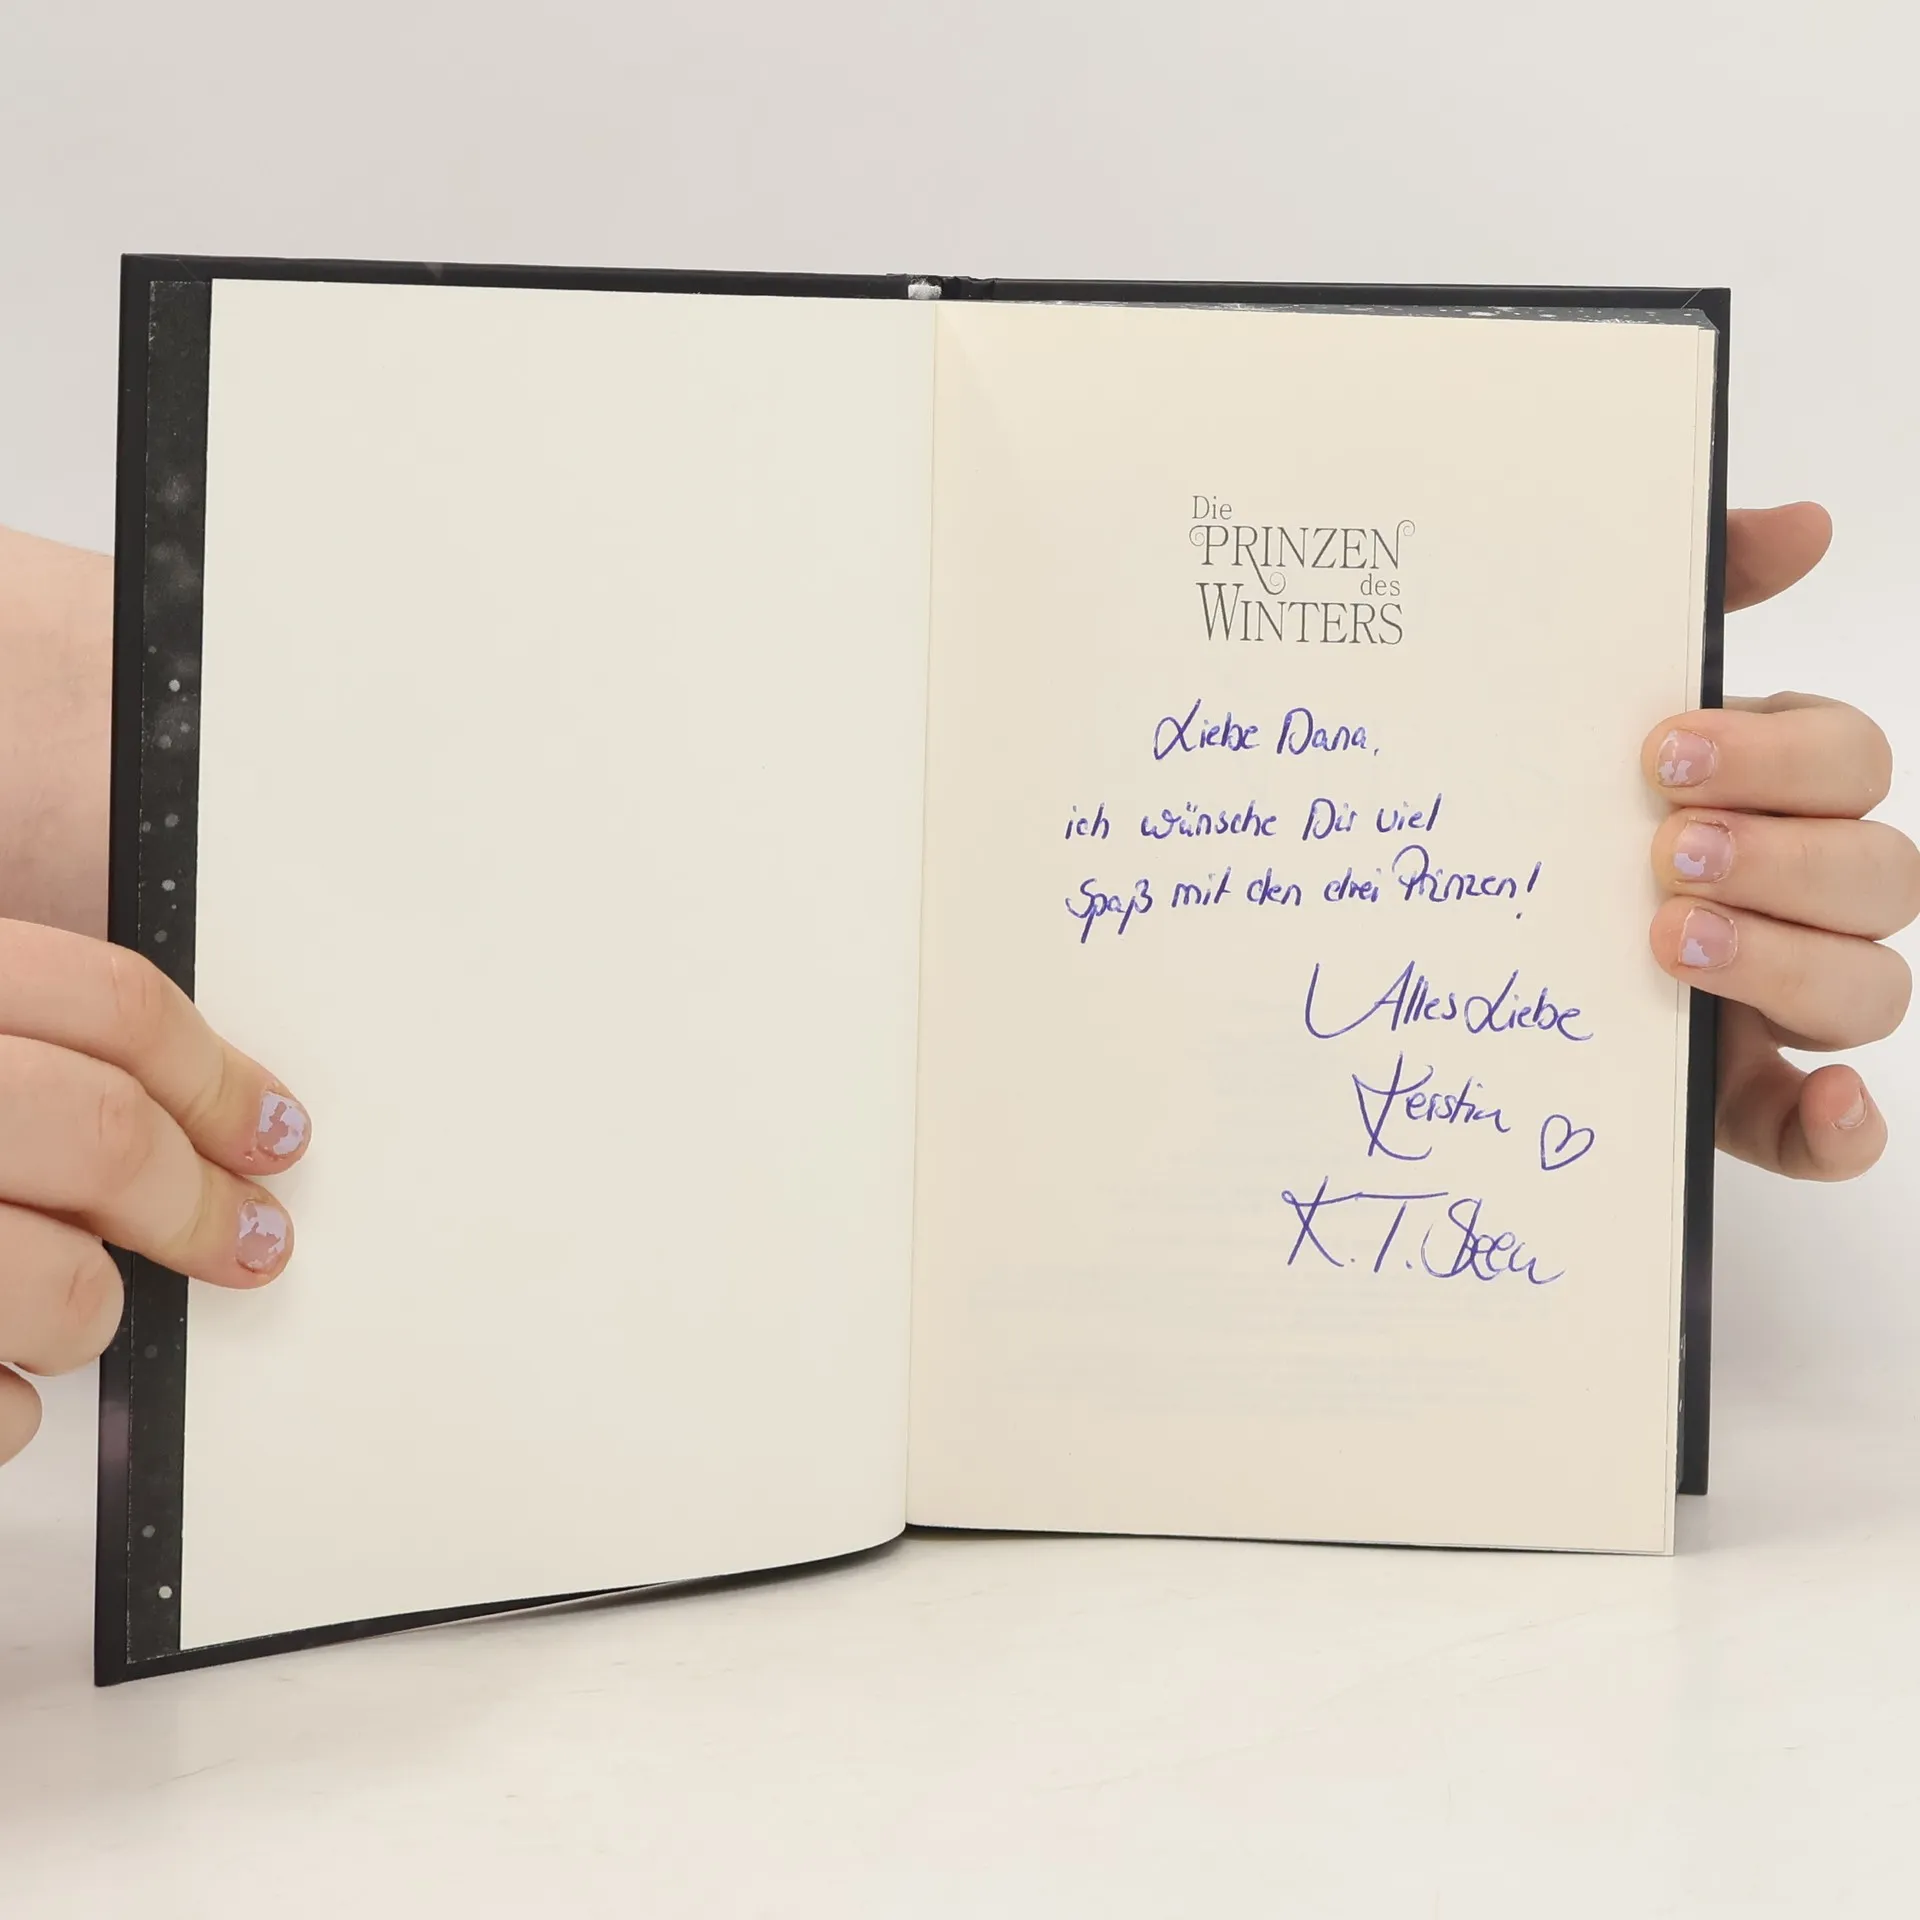 Die
PRINZEN
des
WINTERS
Liebe Dana,
ich wünsche Dir viel
Spaß mit den drei Prinzen!
Alles Liebe
Kerstin ♡
K.T. Steen